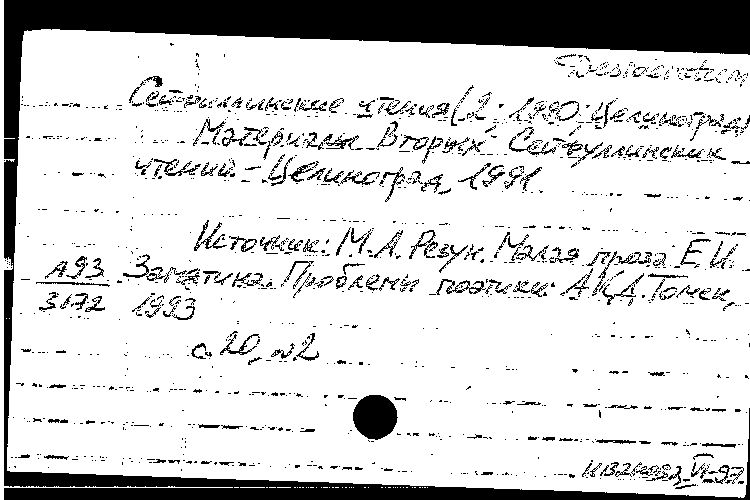 Desideratum
Сейфуллинские чтения (2; 1990; Целиноград)
Материалы Вторых Сейфуллинских
чтений. - Целиноград, 1991.
Источник: М.А. Резун. Малая проза Е.И.
А93 Замятина. Проблемы поэтики. АКД. Томск,
3172 1993
с. 20, №2
Иванова, VI-97.